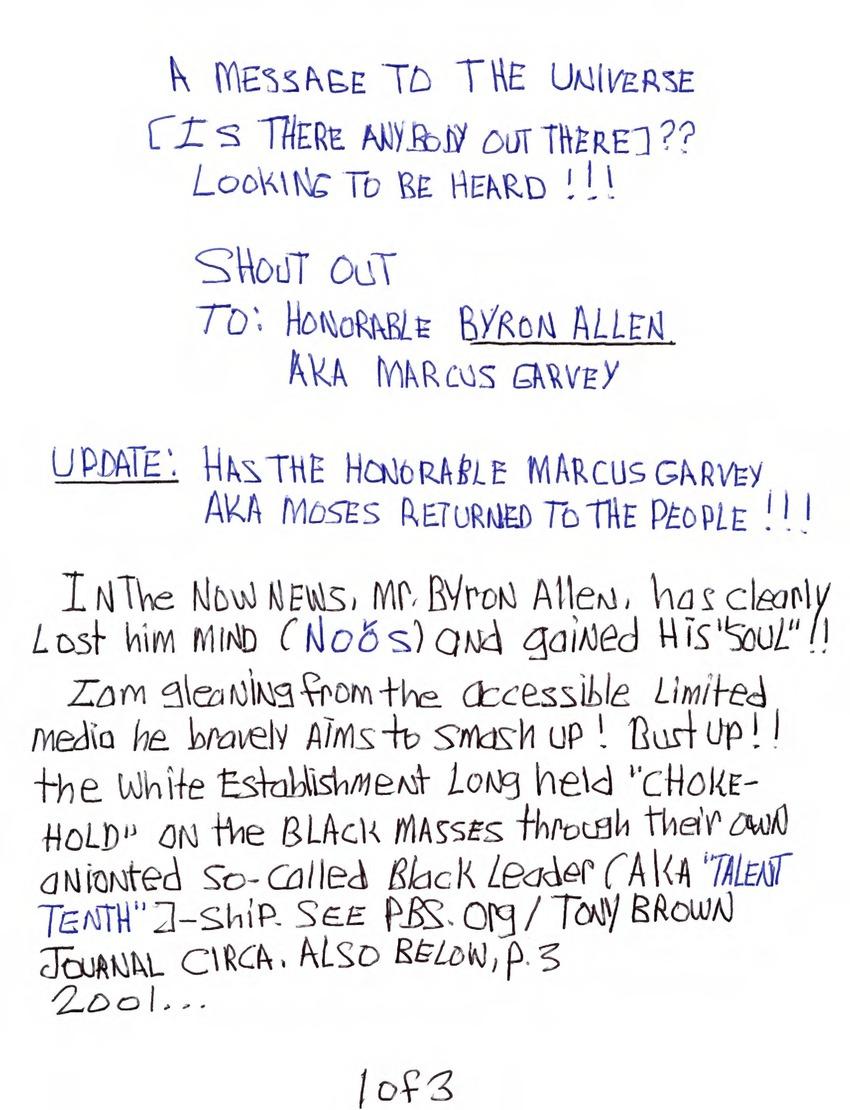 A MESSAGE TO THE UNIVERSE
[IS THERE ANYBODY OUT THERE]??
LOOKING TO BE HEARD !!!
SHOUT OUT
TO: HONORABLE BYRON ALLEN
AKA MARCUS GARVEY
UPDATE: HAS THE HONORABLE MARCUS GARVEY
AKA MOSES RETURNED TO THE PEOPLE !!!
IN The NOW NEWS, Mr. BYroN AlleN, has clearly
Lost him MIND (Noős) aNd gaiNed His "SOUL"!!
I am gleaNiNg from the accessible Limited
media he bravely AIMs to smash UP! Bust UP!!
the White EstablishmeNt LoNg held "CHOKE-
HOLD" ON the BLACK MASSES through their owN
aNioNted so-called Black Leader (AKA "TALENT
TENTH"]-ship. SEE PBS.Org/TONY BROWN
JOURNAL CIRCA. ALSO BELOW, p. 3
2001...
1 of 3